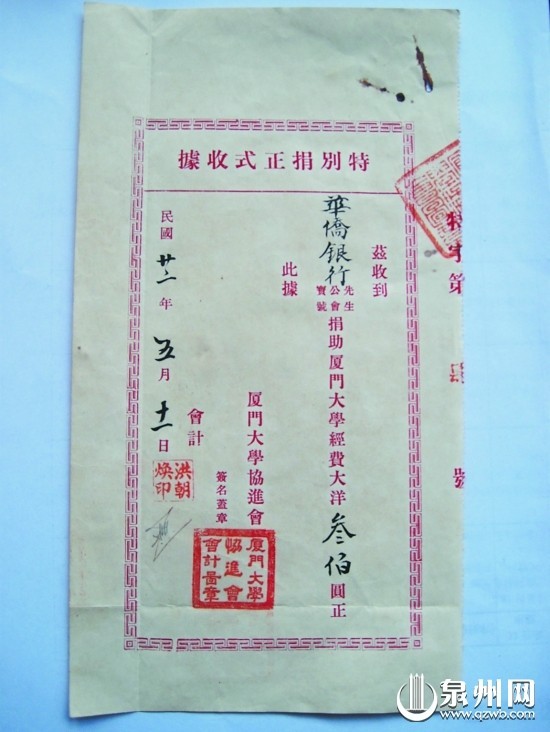 特別捐正式收據
茲收到
華僑銀行 先生 公會 寶號 捐助厦門大學經費大洋叁佰圓正
此據
厦門大學協進會
簽名蓋章
會計
民國廿二年五月十一日
洪朝煥印
厦門大學協進會會計圖章
特字第
號
泉州网
www.qzwb.com